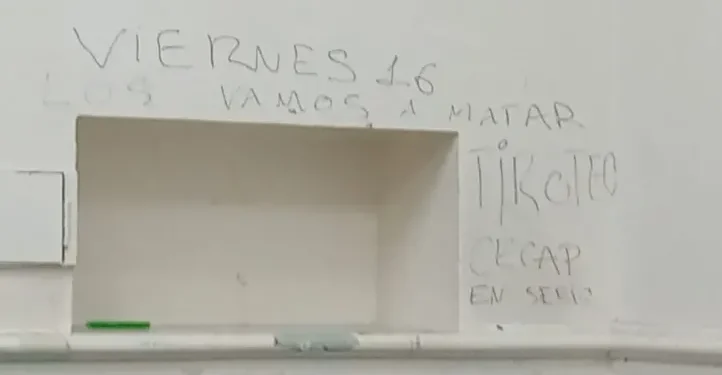 VIERNES 16
LOS VAMOS A MATAR
TiKOTEO
CECAP
EN SERIO